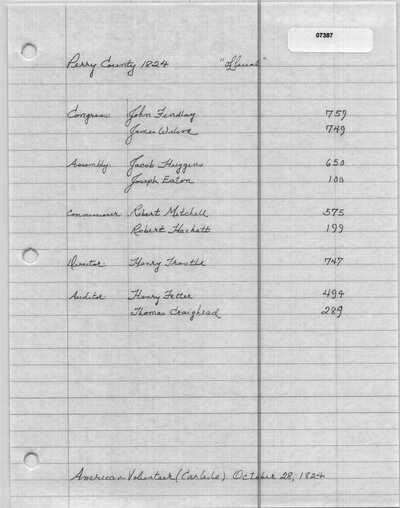 07387
Perry County 1824 "official"
Congress: John Findlay 759
James Wilson 749
Assembly: Jacob Huggins 650
Joseph Eaton 100
Commissioner Robert Mitchell 575
Robert Hackett 199
Director: Henry Trostle 747
Auditor Henry Fetter 494
Thomas Craighead 289
American Volunteer (Carlisle). October 28, 1824